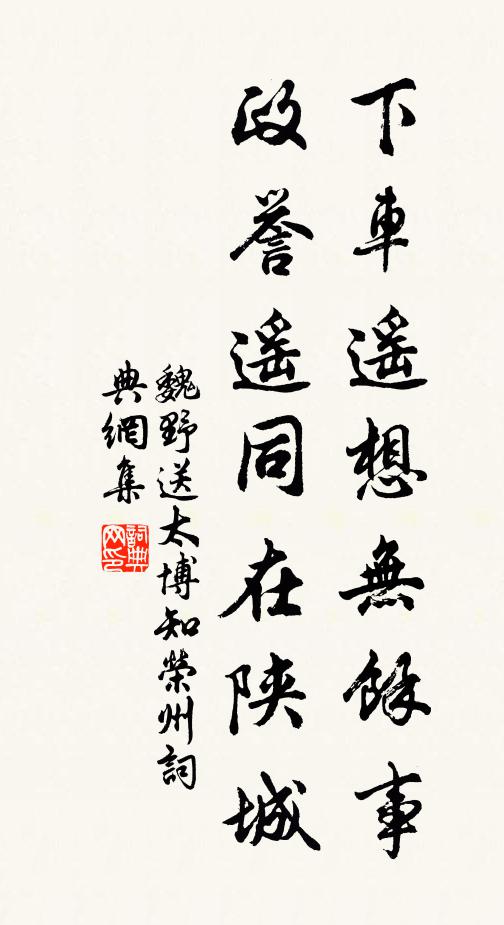 下車遥想無餘事
政誉遥同在陝城
魏野送太博知榮州詞
典網集
詞典
网印